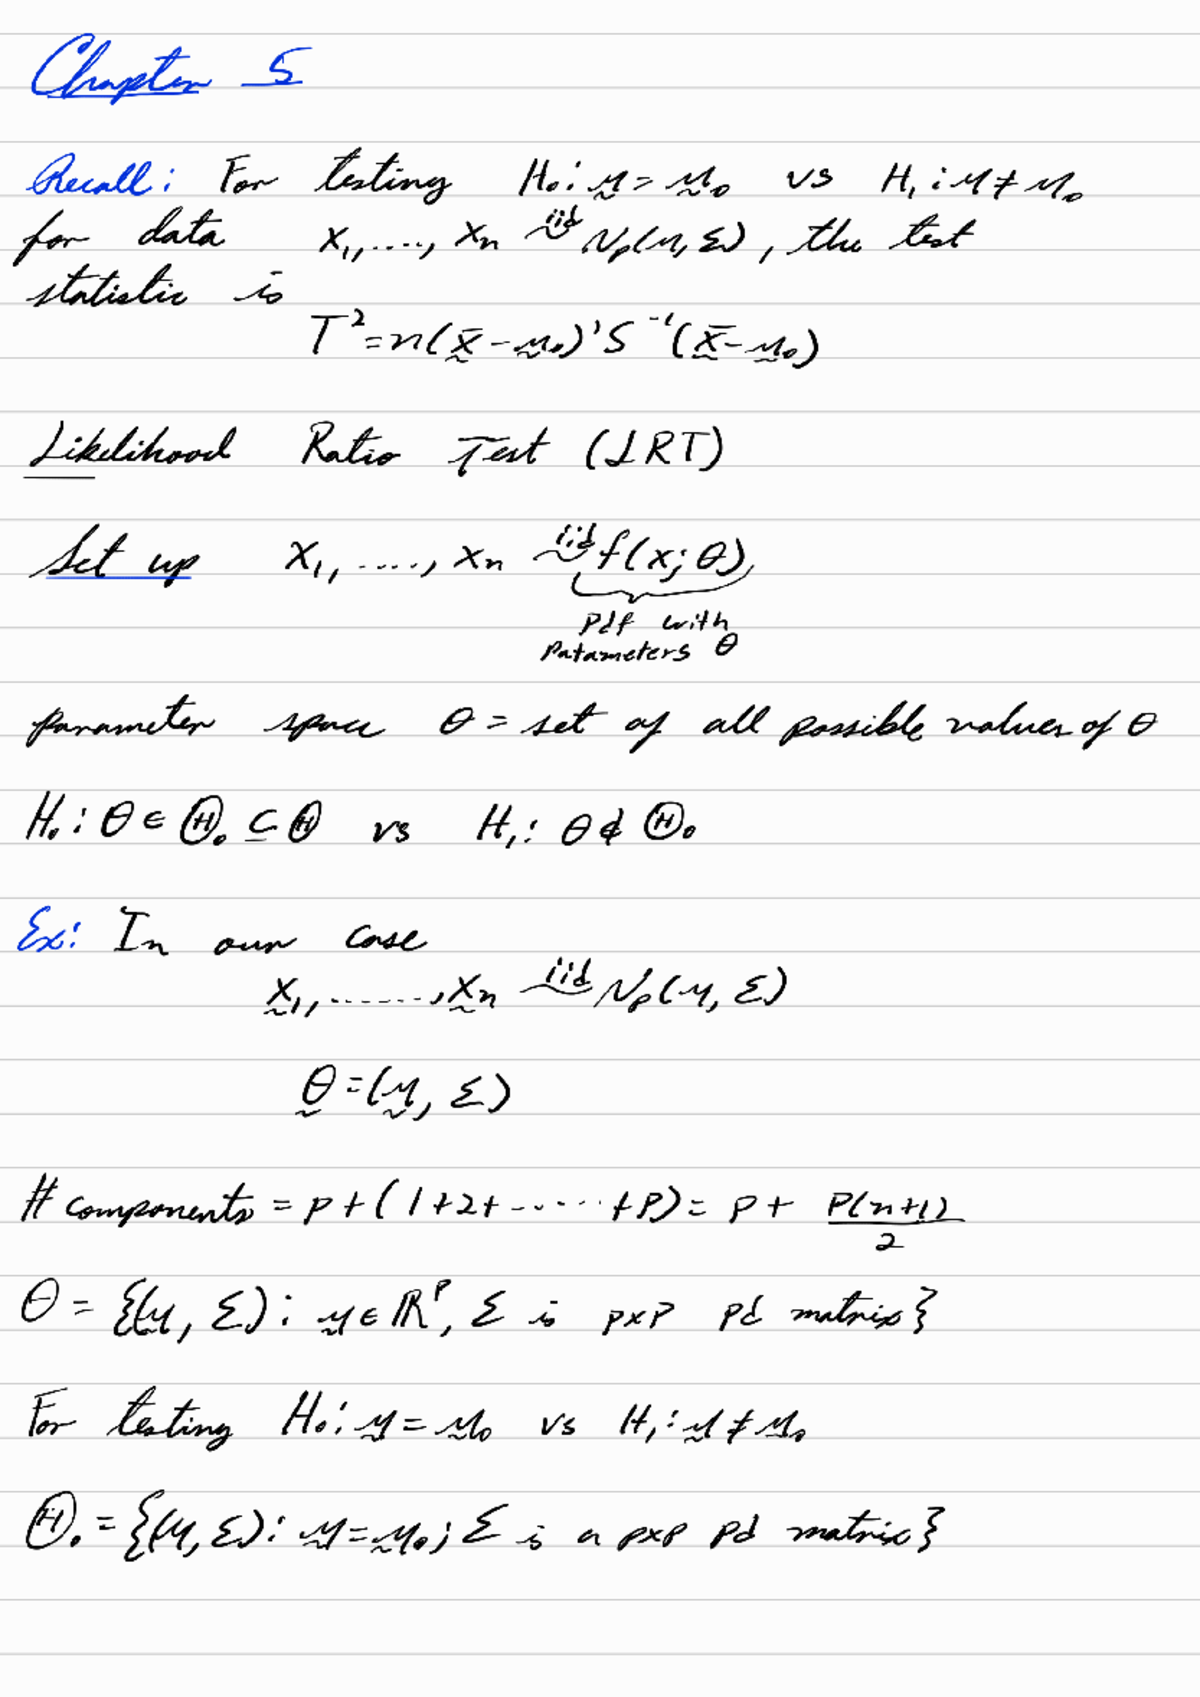 Chapter 5
Recall: For testing H₀: μ̰ = μ̰₀ vs H₁: μ ≠ μ₀
for data x₁, ...., xₙ iid~ Nₚ(μ, Σ), the test
statistic is
T² = n(x̰̄ - μ̰₀)'S⁻¹(x̰̄ - μ̰₀)
Likelihood Ratio Test (LRT)
Set up x₁, ...., xₙ iid~ f(x; θ)
pdf with
Parameters θ
parameter space θ = set of all possible values of θ
H₀: θ ∈ Θ₀ ⊆ Θ vs H₁: θ ∉ Θ₀
Ex: In our case
x̰₁, ......., x̰ₙ iid~ Nₚ(μ, Σ)
θ̰ = (μ̰, Σ)
# components = p + (1+2+ ...... +P) = p + P(n+1)/2
Θ = {(μ̰, Σ): μ̰ ∈ ℝᴾ, Σ is pxp pd matrix}
For testing H₀: μ̰ = μ̰₀ vs H₁: μ̰ ≠ μ̰₀
Θ₀ = {(μ, Σ): μ̰ = μ̰₀; Σ is a pxp pd matrix}